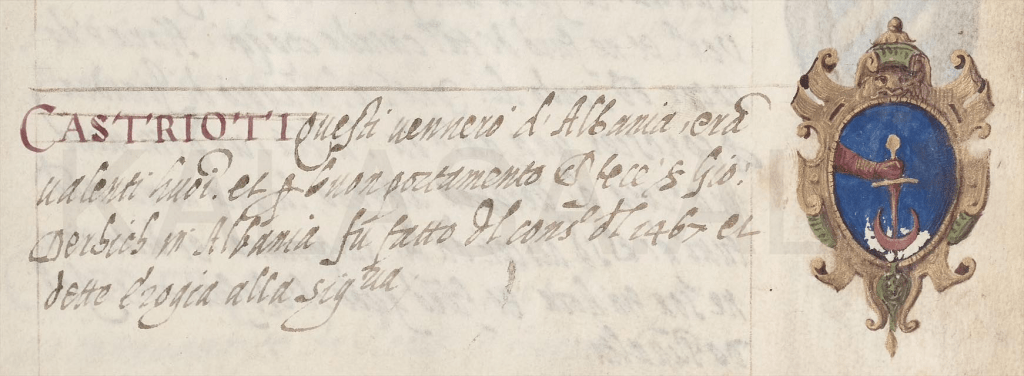 CASTRIOTI Questi vennero d'Albania, erã
valenti huoi. et ꝑ buon portamento fece s Gio:
in Albania fù fatto dl cons.º dl 1467 et
dette Croia alla sigria